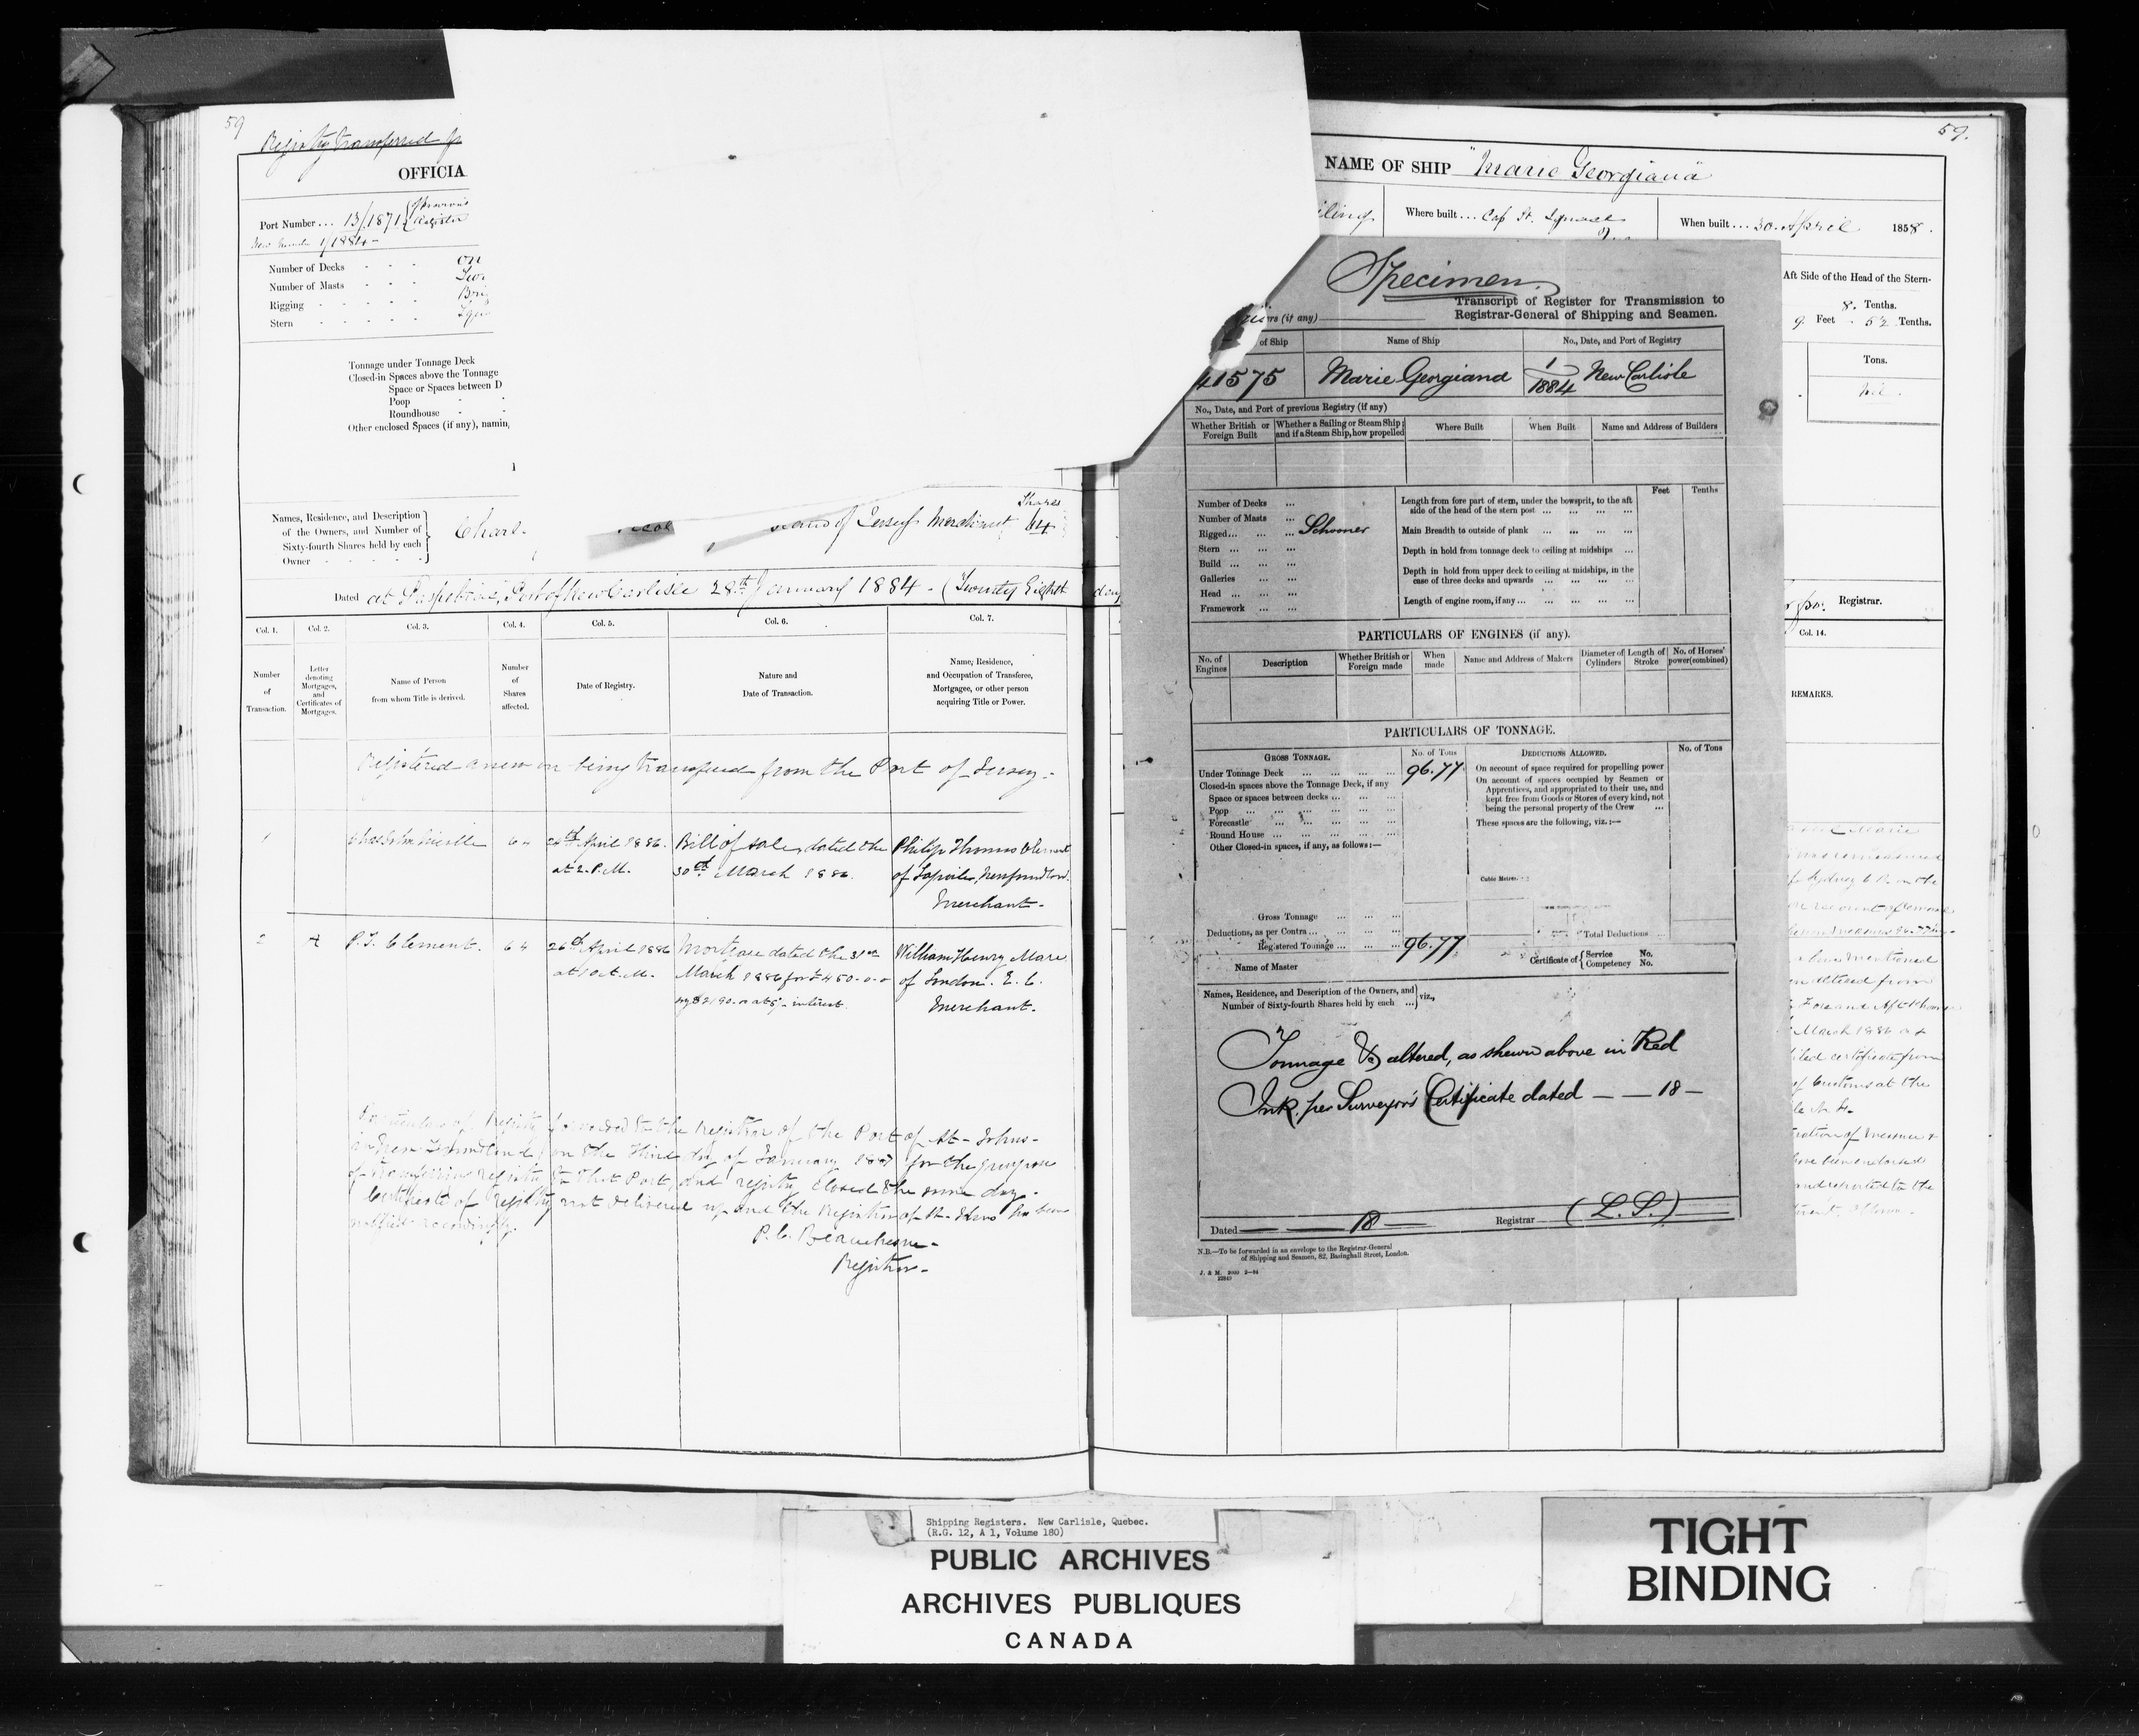 59
Registry transferred
OFFICIA
Port Number ... 13/1871
1/1884 -
Number of Decks - - -
Number of Masts - - -
Rigging - - - - -
Stern - - - - -
Tonnage under Tonnage Deck
Closed-in Spaces above the Tonnage
Space or Spaces between D
Poop -
Roundhouse -
Other enclosed Spaces (if any), namin
Names, Residence, and Description
of the Owners, and Number of
Sixty-fourth Shares held by each
Owner - - - - -
Chars.
of Jersey Merchant
Shares
64
Dated at Paspebiac, Port of New Carlisle 28th January 1884 - (Twenty Eighth day
Col. 1. Col. 2. Col. 3. Col. 4. Col. 5. Col. 6. Col. 7.
Number of Transaction.
Letter denoting Mortgages, and Certificates of Mortgages.
Name of Person from whom Title is derived.
Number of Shares affected.
Date of Registry.
Nature and Date of Transaction.
Name, Residence, and Occupation of Transferee, Mortgagee, or other person acquiring Title or Power.
Registered anew on being transferred from the Port of Jersey -
1 64 24th April 1886. Bill of sale, dated the Philip Thomas Clement
at 2. P.M. 30th March 1886. of Lapoile, Newfoundland.
Merchant -
2 A P. T. Clement. 64 26th April 1886 Mortgage dated the 31st William Henry Mare
at 10 A.M. March 1886 for £450-0-0 of London. E. C.
or $2190.00 at 5% interest. Merchant.
Particulars of Registry forwarded to the Registrar of the Port of St. Johns -
in Newfoundland on the Third day of January 1887 for the purpose
of transferring registry to that Port, and registry closed the same day -
Certificate of registry not delivered up and the Registrar of St. Johns has been
notified accordingly.
P. C. Beauchesne -
Registrar -
59.
NAME OF SHIP "Marie Georgiana"
iling. Where built ... Cap St. Ignace When built ... 30. April 1858.
Aft Side of the Head of the Stern-
8. Tenths.
9. Feet . 52 Tenths.
Tons.
Nil
Registrar.
Col. 14.
REMARKS.
March 1886
certificate from
of Customs at the
and reported to the
Specimen.
Transcript of Register for Transmission to
Registrar-General of Shipping and Seamen.
rs (if any)
of Ship Name of Ship No., Date, and Port of Registry
41575 Marie Georgiand 1/1884 New Carlisle
No., Date, and Port of previous Registry (if any)
Whether British or Foreign Built
Whether a Sailing or Steam Ship; and if a Steam Ship, how propelled
Where Built
When Built
Name and Address of Builders
Number of Decks ...
Number of Masts ...
Rigged ... ... ... Schooner
Stern ... ... ...
Build ... ... ...
Galleries ... ...
Head ... ... ...
Framework ... ...
Feet Tenths
Length from fore part of stem, under the bowsprit, to the aft
side of the head of the stern post ... ... ... ...
Main Breadth to outside of plank ... ... ... ...
Depth in hold from tonnage deck to ceiling at midships ...
Depth in hold from upper deck to ceiling at midships, in the
case of three decks and upwards ... ... ... ...
Length of engine room, if any ... ... ... ... ...
PARTICULARS OF ENGINES (if any).
No. of Engines
Description
Whether British or Foreign made
When made
Name and Address of Makers
Diameter of Cylinders
Length of Stroke
No. of Horses' power (combined)
PARTICULARS OF TONNAGE.
GROSS TONNAGE. No. of Tons
Under Tonnage Deck ... ... ... ... 96.77
Closed-in spaces above the Tonnage Deck, if any
Space or spaces between decks ... ... ...
Poop ... ... ... ... ...
Forecastle ... ... ... ...
Round House ... ... ... ...
Other Closed-in spaces, if any, as follows:—
Cubic Metres.
Gross Tonnage ... ... ...
Deductions, as per Contra ... ... ... ...
Registered Tonnage ... ... ... 96.77
DEDUCTIONS ALLOWED. No. of Tons
On account of space required for propelling power
On account of spaces occupied by Seamen or
Apprentices, and appropriated to their use, and
kept free from Goods or Stores of every kind, not
being the personal property of the Crew ...
These spaces are the following, viz.:—
Total Deductions
Name of Master
Certificate of { Service No.
Competency No.
Names, Residence, and Description of the Owners, and
Number of Sixty-fourth Shares held by each ... } viz.,
Tonnage &c altered, as shewn above in Red
Ink. per Surveyor's Certificate dated — — 18 —
Dated — — 18 — Registrar (L.S.)
N.B.—To be forwarded in an envelope to the Registrar-General
of Shipping and Seamen, 82, Basinghall Street, London.
J. & M. 2000 2—84
Shipping Registers. New Carlisle, Quebec.
(R.G. 12, A 1, Volume 180)
PUBLIC ARCHIVES
ARCHIVES PUBLIQUES
CANADA
TIGHT
BINDING